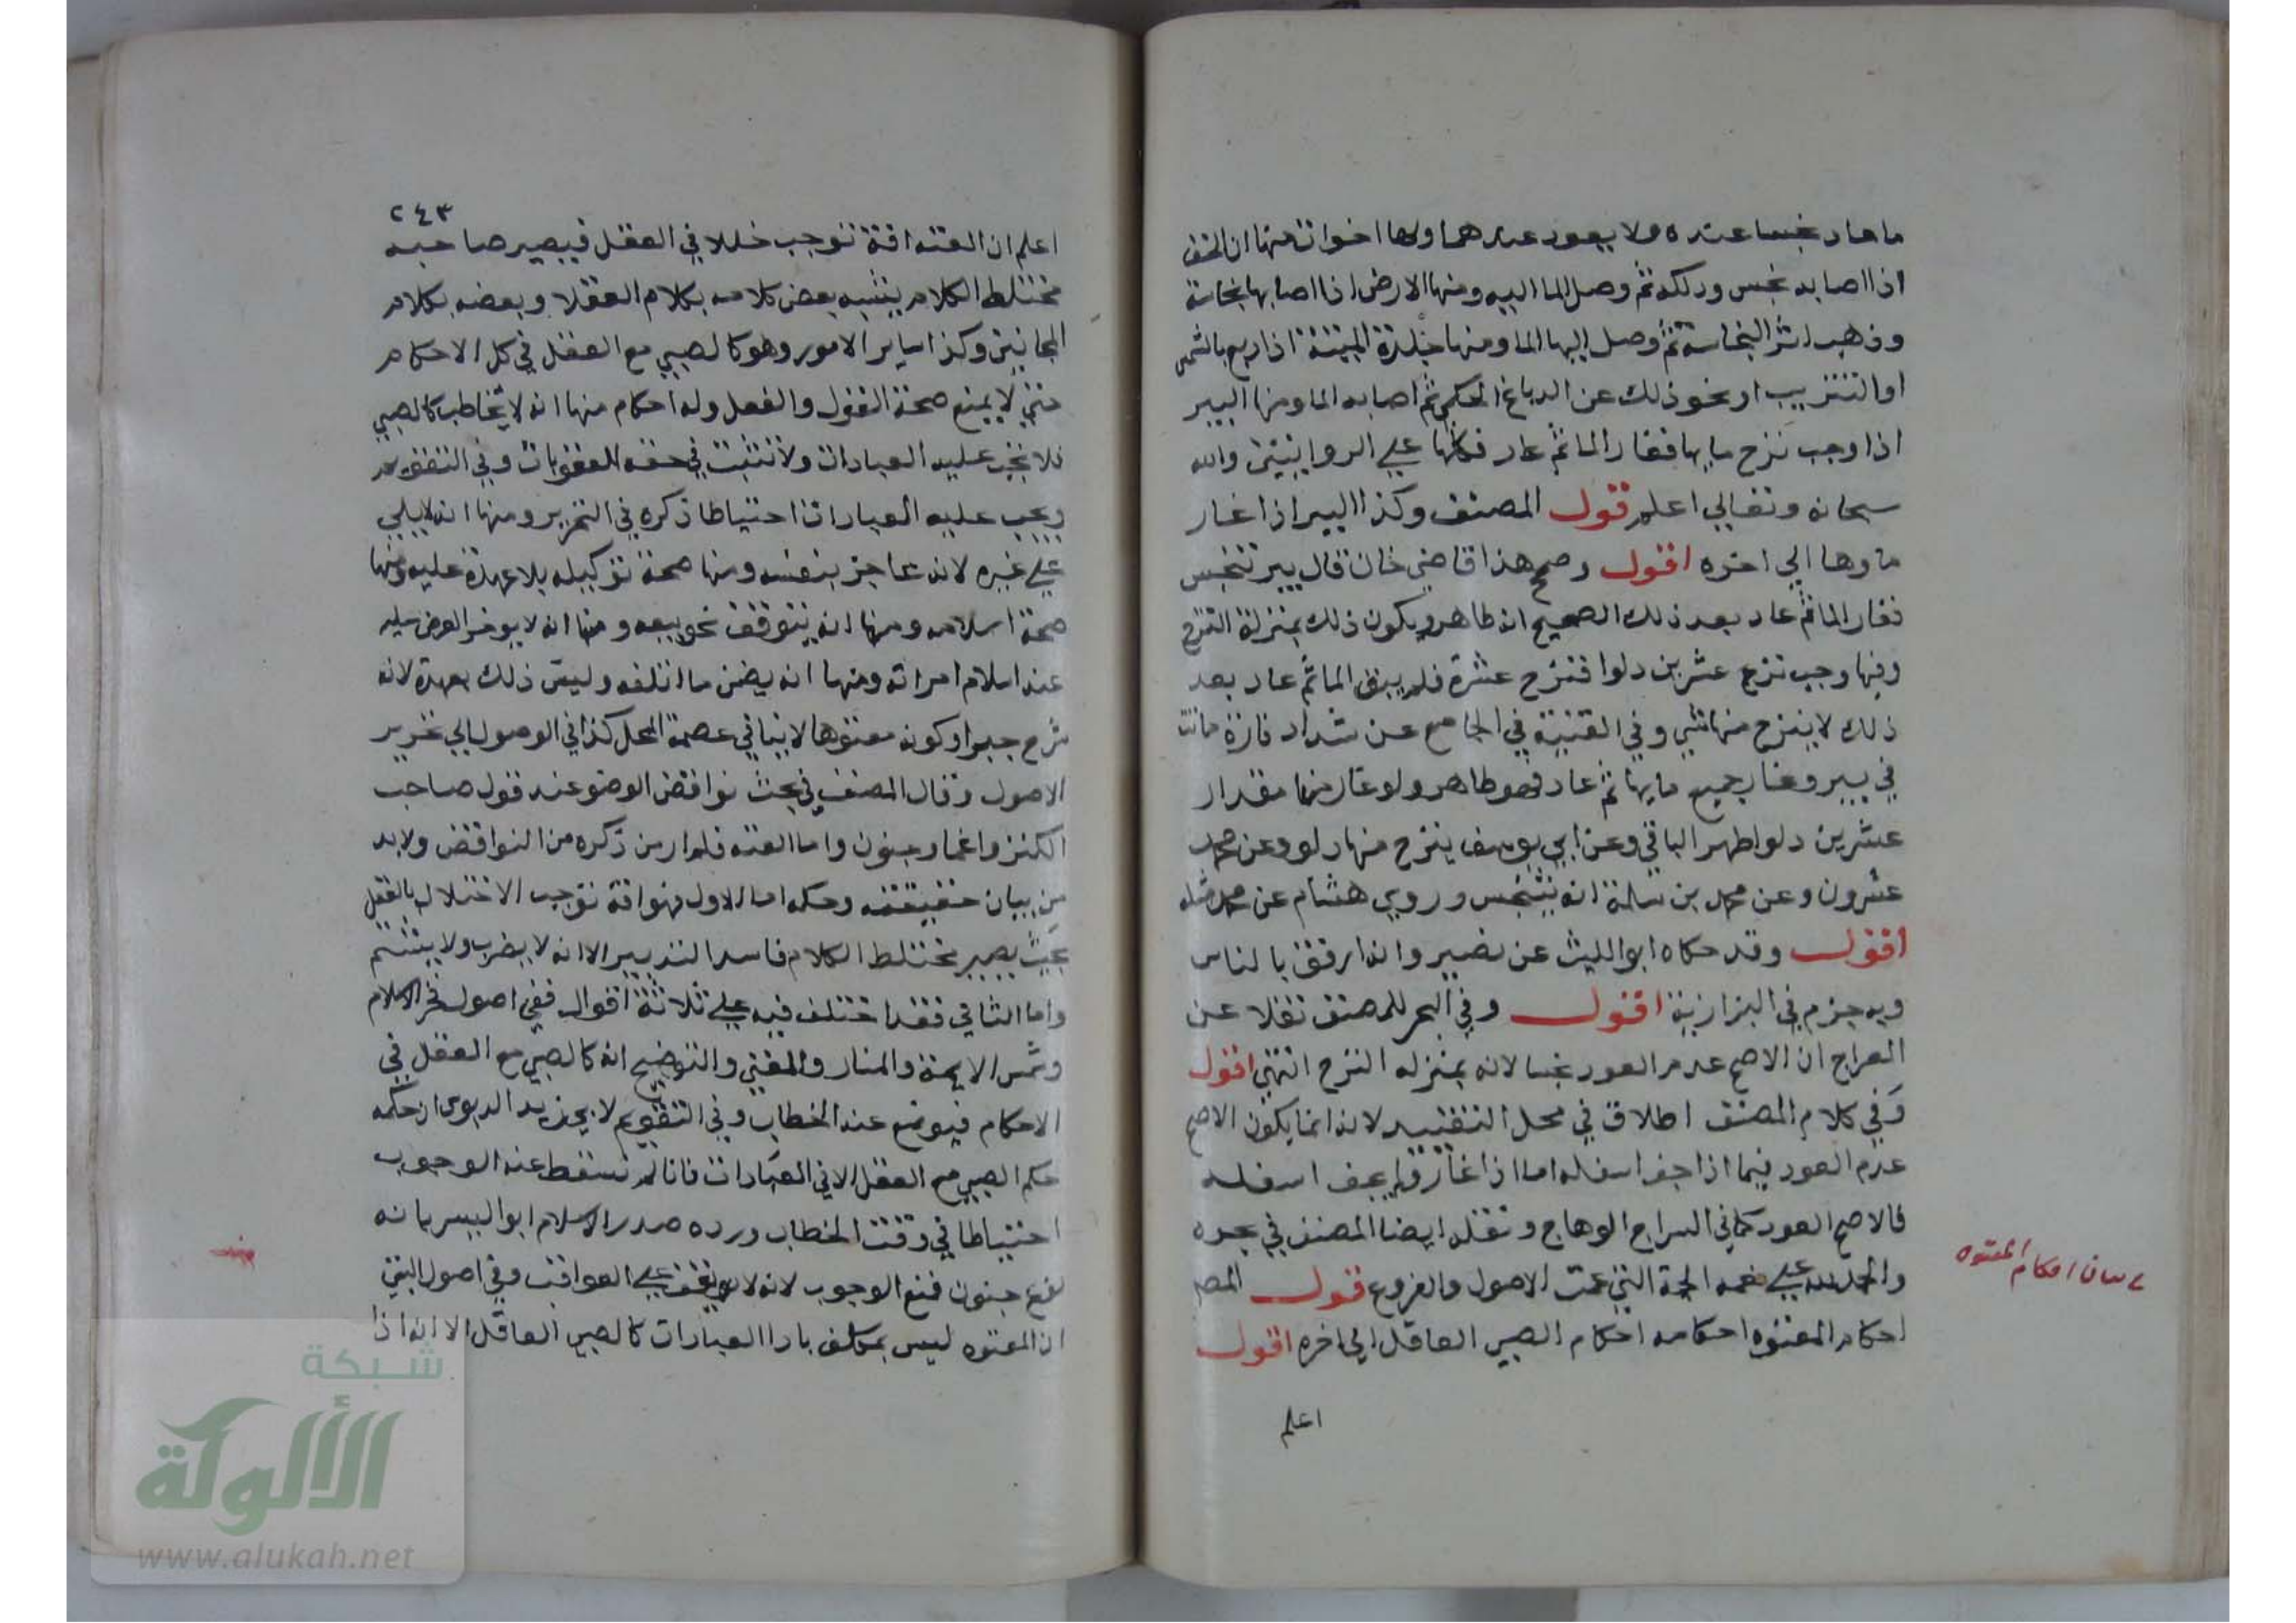 ما عاد نجسا عنده ولا يعود عندهما ولها اخوات منها ان الخف
اذا اصابه نجس ودلكه ثم وصل الما اليه ومنها الارض اذا اصابها نجاسة
وذهب اثر النجاسة ثم وصل اليها الما ومنها جلدة الميتة اذا دبع بالشمس
او التتريب او نحو ذلك عن الدباغ الحكمي ثم اصابه الما ومنها البير
اذا وجب نزح ما بها فغار الما ثم عاد فكلها علي الروايتين والله
سبحانه وتعالي اعلم قول المصنف وكذا البير اذا غار
ماوها الي اخره اقول وصحح هذا قاضي خان قال بير تنجس
فغار الما ثم عاد بعد ذلك الصحيح انه طاهر ويكون ذلك بمنزلة النزح
وفيها وجب نزح عشرين دلوا فنزح عشرة فلم يبق الما ثم عاد بعد
ذلك لا ينزح منها شي وفي القنية في الجامع عن شداد فارة ماتت
في بير وغار جميع مايها ثم عاد فهو طاهر ولو غار منها مقدار
عشرين دلوا طهر الباقي وعن ابي يوسف ينزح منها دلو وعن محمد
عشرون وعن محمد بن سلمة انه يتنجس وروي هشام عن محمد مثله
اقول وقد حكاه ابو الليث عن نصير وانه ارفق بالناس
وبه جزم في البزازية اقول وفي البحر للمصنف نقلا عن
المعراج ان الاصح عدم العود نجسا لانه بمنزله النزح انتهي اقول
وفي كلام المصنف اطلاق في محل التقييد لانه انما يكون الاصح
عدم العود فيما اذا جف اسفله اما اذا غار ولم يجف اسفله
فالاصح العود كما في السراج الوهاج ونقله ايضا المصنف في بحره
والحمد لله علي نعمه الجمة التي عمت الاصول والفروع قول المص
احكام المعتوه احكامه احكام الصبي العاقل الي اخره اقول
اعلم
احكام المعتوه
٢٤٣
اعلم ان العته افة توجب خللا في العقل فيصير صاحبه
مختلط الكلام يشبه بعض كلامه بكلام العقلا وبعضه بكلام
المجانين وكذا ساير الامور وهو كالصبي مع العقل في كل الاحكام
حتي لا يمنع صحة القول والفعل وله احكام منها انه لا يخاطب كالصبي
فلا تجب عليه العبادات ولا تثبت في حقه العقوبات وفي التقويم
ويجب عليه العبادات احتياطا ذكره في التحرير ومنها انه لا يلي
علي غيره لانه عاجز بنفسه ومنها صحة توكيله بلا عهدة عليه ومنها
صحة اسلامه ومنها انه يتوقف نحو بيعه ومنها انه لا يوخر العرض عليه
عند اسلام امراته ومنها انه يضمن ما اتلفه وليس ذلك بعهدة لانه
شرع جبرا وكونه معتوها لا ينافي عصمة المحل كذا في الوصول الي تحرير
الاصول وقال المصنف في بحث نواقض الوضو عند قول صاحب
الكنز واغما وجنون واما العته فلم ار من ذكره من النواقض ولابد
من بيان حقيقته وحكمه اما الاول فهو افة توجب الاختلال بالعقل
بحيث يصير مختلط الكلام فاسد التدبير الا انه لا يضرب ولا يشتم
واما الثاني فقد اختلف فيه علي ثلاثة اقوال ففي اصول فخر الاسلام
وشمس الايمة والمنار والمغني والتوضيح انه كالصبي مع العقل في
الاحكام فيوضع عنه الخطاب وفي التقويم لابي زيد الدبوسي ان حكمه
حكم الصبي مع العقل الا في العبادات فانا لم نسقط عنه الوجوب
احتياطا في وقت الخطاب ورده صدر الاسلام ابو اليسر بانه
نوع جنون فمنع الوجوب لانه لا يقف علي العواقب وفي اصول البستي
ان المعتوه ليس بمكلف بادا العبادات كالصبي العاقل الا انه اذا
شبكة
الألوكة
www.alukah.net